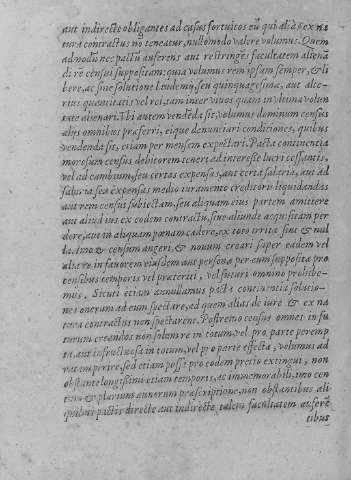 aut indirecte obligantes ad casus fortuitos eū qui aliàs ex na
tura contractus nō teneatur, nullo modo valere volumus. Quem
admodū nec pactū auferens aut restringēs facultatem alienā
di rē census suppositam: quia volumus rem ipsam semper, & li
bere, ac sine solutione laudemij, seu quinquagesimæ, aut alte-
rius quantitatis vel rei, tam inter vivos quàm in ultima volun
tate alienari. Vbi autem vendēda sit, volumus dominum census
alijs omnibus præferri, eique denunciari conditiones, quibus
vendenda sit, etiam per mensem expectari. Pacta continentia
morosum census debitorem teneri ad interesse lucri cessantis,
vel ad cambium, seu certas expensas, aut certa salaria, aut ad
salaria seu expensas medio iuramento creditoris liquidandas
aut rem census subiectam, seu aliquam eius partem amittere
aut aliud ius ex eodem contractu, sive aliunde acquisitam per
dere, aut in aliquam pœnam cadere, ex toto irrita sint & nul
la. Imo & censum augeri, & novum creari super eadem vel
alia re, in favorem eiusdem aut personæ per eum suppositæ pro
censibus temporis vel præteriti, vel futuri omnino prohibe-
mus. Sicuti etiam annullamus pacta continentia solutio-
nes onerum ad eum spectare, ad quem aliàs de iure & ex na
tura contractus non spectarent. Postremo census omnes in fu
turum creandos non solum re in totum, vel pro parte peremp
ta, aut infructuosa in totum, vel pro parte effecta, volumus ad
ratam perire, sed etiam posse pro eodem precio extingui, non
obstante longissimi etiam temporis, ac immemorabili, imo cen
tum & plurium annorum præscriptione, non obstantibus ali
quibus pactis directe aut indirecte talem facultatem auferē
tibus